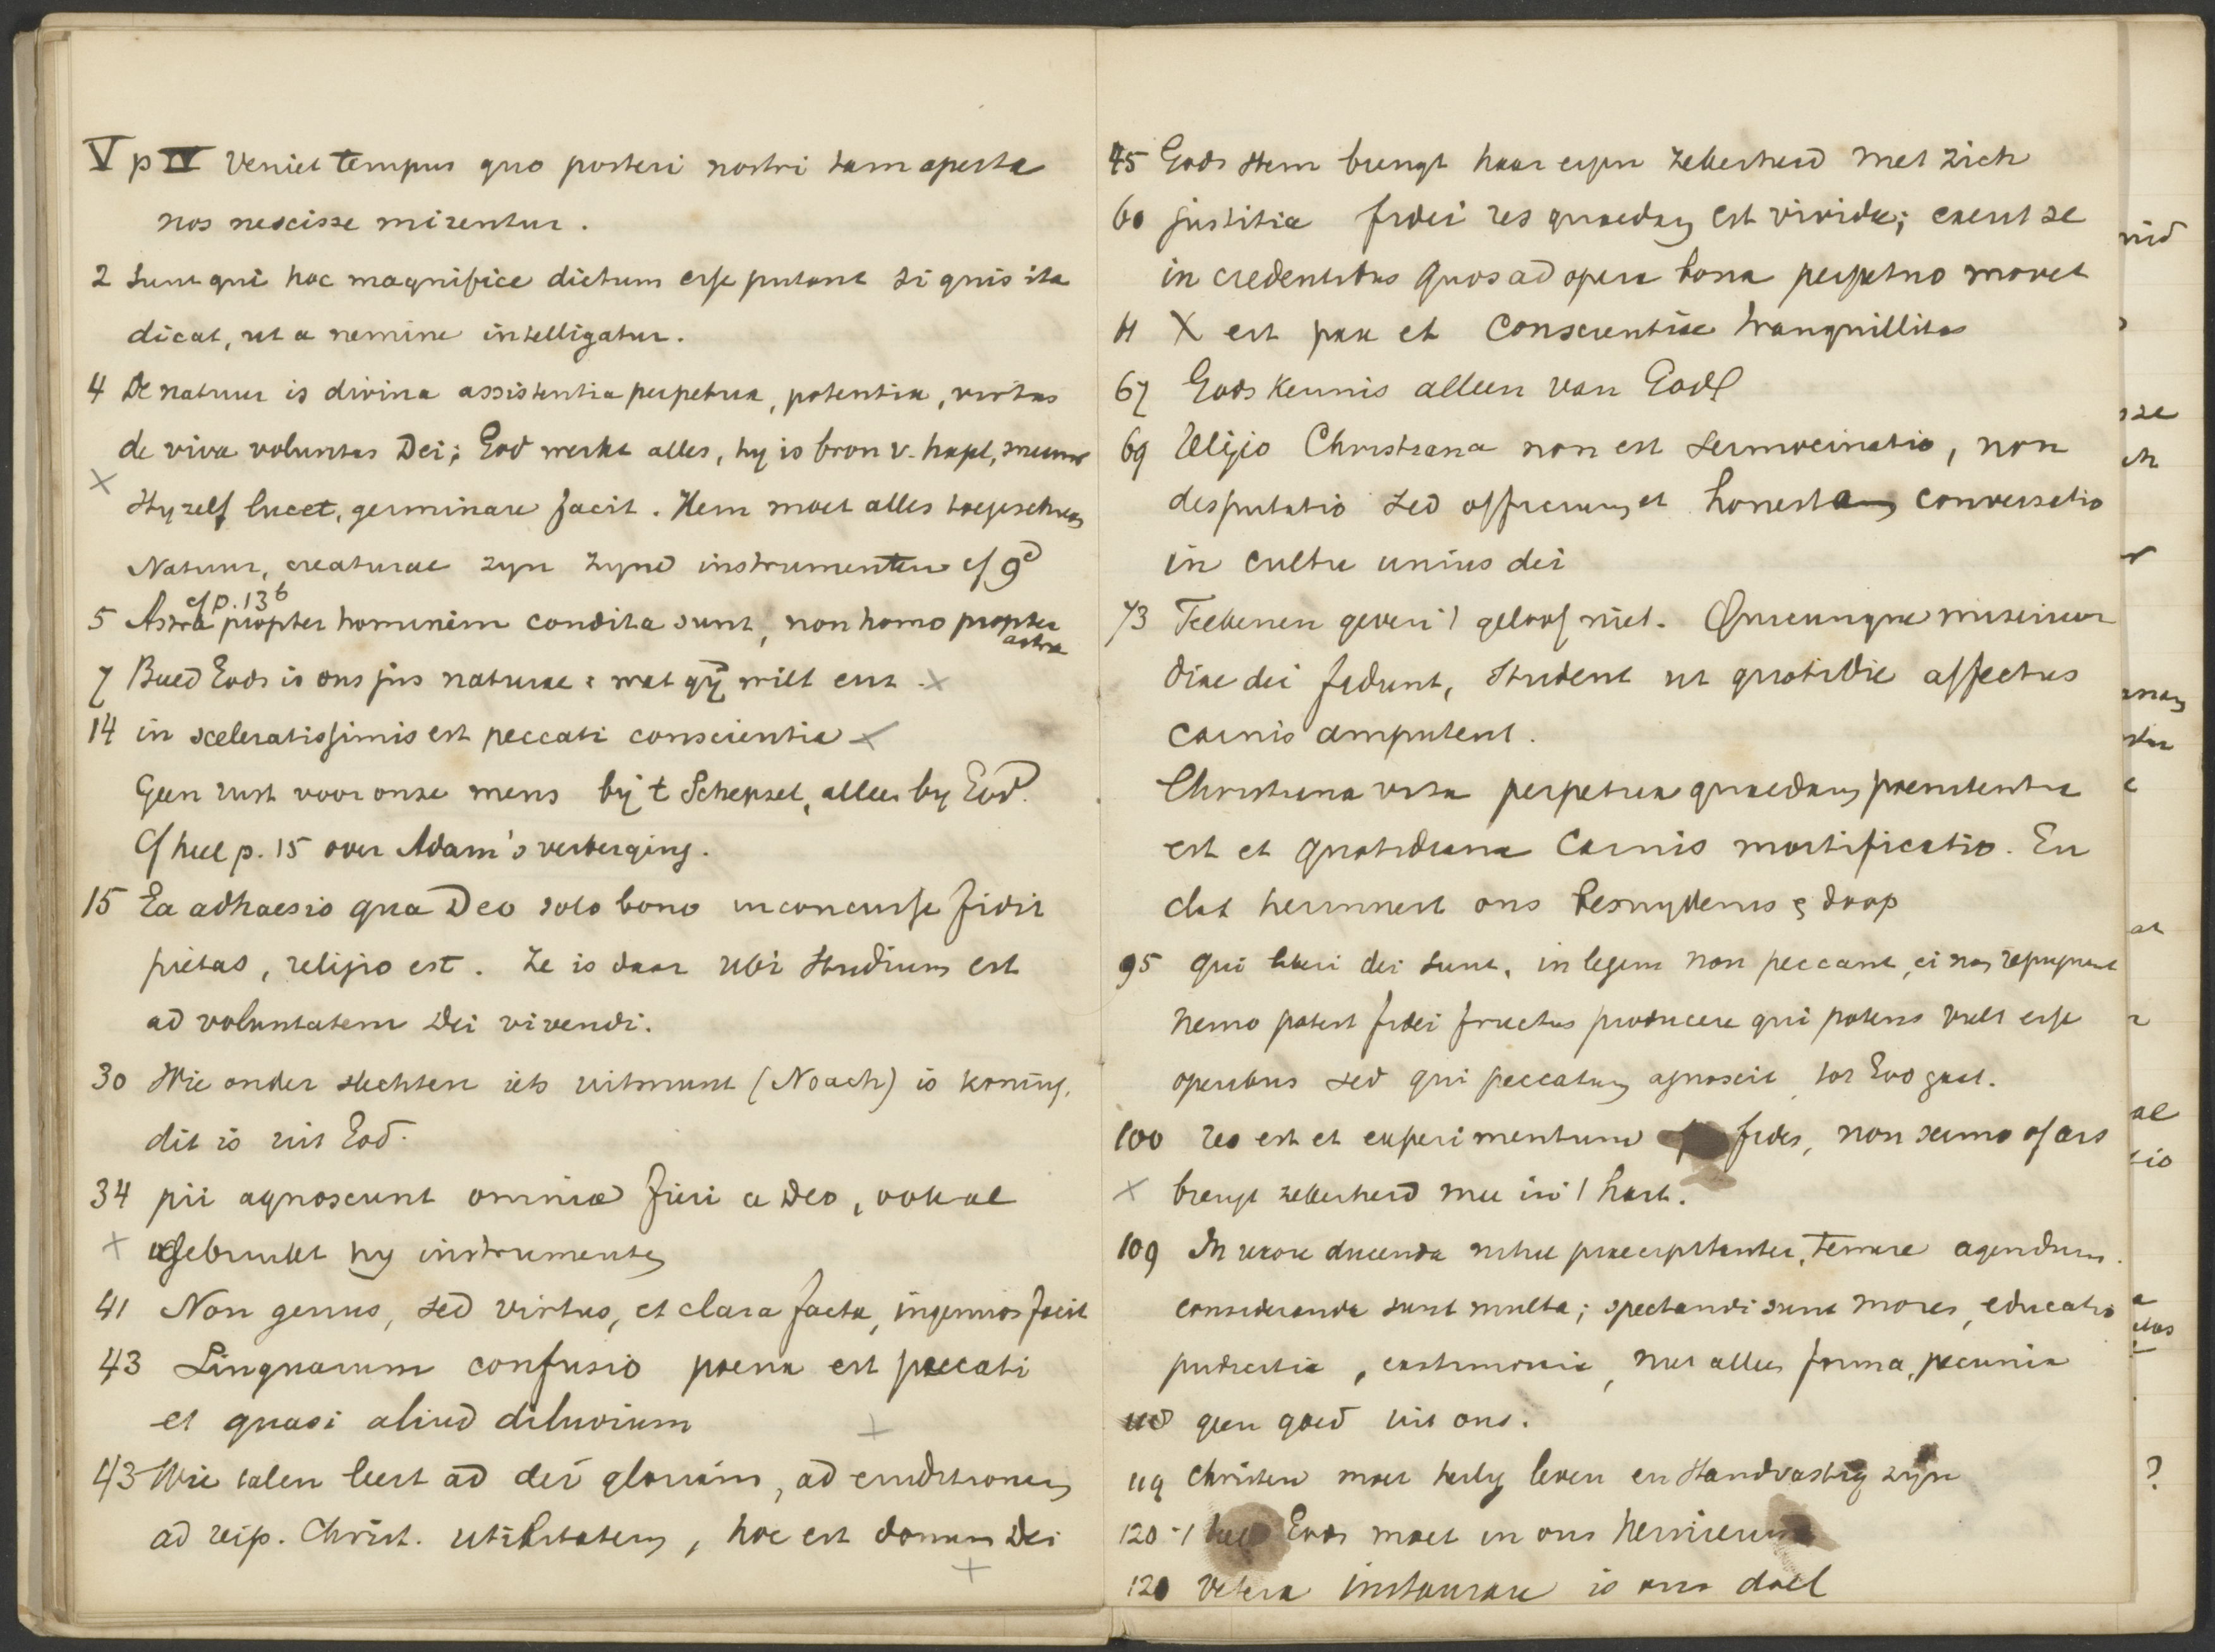 V p IV Veniet tempus quo posteri nostri tam aperta
nos nescisse mirentur.
2 Sunt qui hoc magnifice dictum esse putant si quis ita
dicat, ut a nemine intelligatur.
4 De natuur is divina assistentia perpetua, potentia, virtus
de viva voluntas Dei; God werkt alles, hy is bron v.
X Hy zelf lucet, germinare facit. Hem moet alles toegeschreven
Natuur, creaturae zyn zynd instrumenten cf 9d
cf p. 13b
5 Astra propter hominem condita sunt, non homo propter
astra
7 Beeld Gods is ons jus naturae: wat gÿ wilt enz. X
14 in sceleratissimis est peccati conscientia X
Geen rust voor onze mens bij t Schepsel, alleen by God.
Cf heel p. 15 over Adam's verberging.
15 Ea adhaesio qua Deo solo bono inconcusse fidit
pietas, religio est. Ze is daar ubi studium est
ad voluntatem Dei vivendi.
30 Wie onder slechten iets uitmunt (Noach) is koning,
dit is uit God.
34 pii agnoscunt omnia fieri a Deo, ook al
X gebruikt hy instrumenten
41 Non genus, sed virtus, et clara facta, ingenuos facit
43 Linguarum confusio poena est peccati
et quasi aliud diluvium X
43 Wie talen leert ad dei gloriam, ad eruditionem
ad reip. Christ. utilitatem, hoc est donum Dei
X
45 Gods stem brengt haar eigen zekerheid met zich
60 justitia fidei res quaedam est vivida; exerit se
in credentibus quos ad opera bona perpetuo movet
X est pax et conscientiae tranquillitas
67 Gods kennis alleen van God
69 Religio Christiana non est sermocinatio, non
disputatio sed officium et honesta conversatio
in cultu unius dei
73 Teekenen geven 't geloof niet. Quicunque misericor
diae dei fidunt, student ut quotidie affectus
carnis amputent.
Christiana vita perpetua quaedam poenitentia
est et quotidiana carnis mortificatio. En
dat herinnert ons besnydenis & doop
95 qui liberi dei sunt, in legem non peccant, ei non repugnant
nemo potest fidei fructus producere qui potens vult esse
operibus sed qui peccatum agnoscit, tot God gaat.
100 res est et experimentum fides, non sermo of ars
X brengt zekerheid mee in 't hart.
109 In uxore ducenda nihil praecipitanter, temere agendum.
consideranda sunt multa; spectandi sunt mores, educatio
pudicitia, castimonia, niet alleen forma, pecunia
110 geen goed uit ons.
119 Christen moet heilig leven en standvastig zijn
120 't beeld Gods moet in ons
120 Vetera instaurare is ons doel